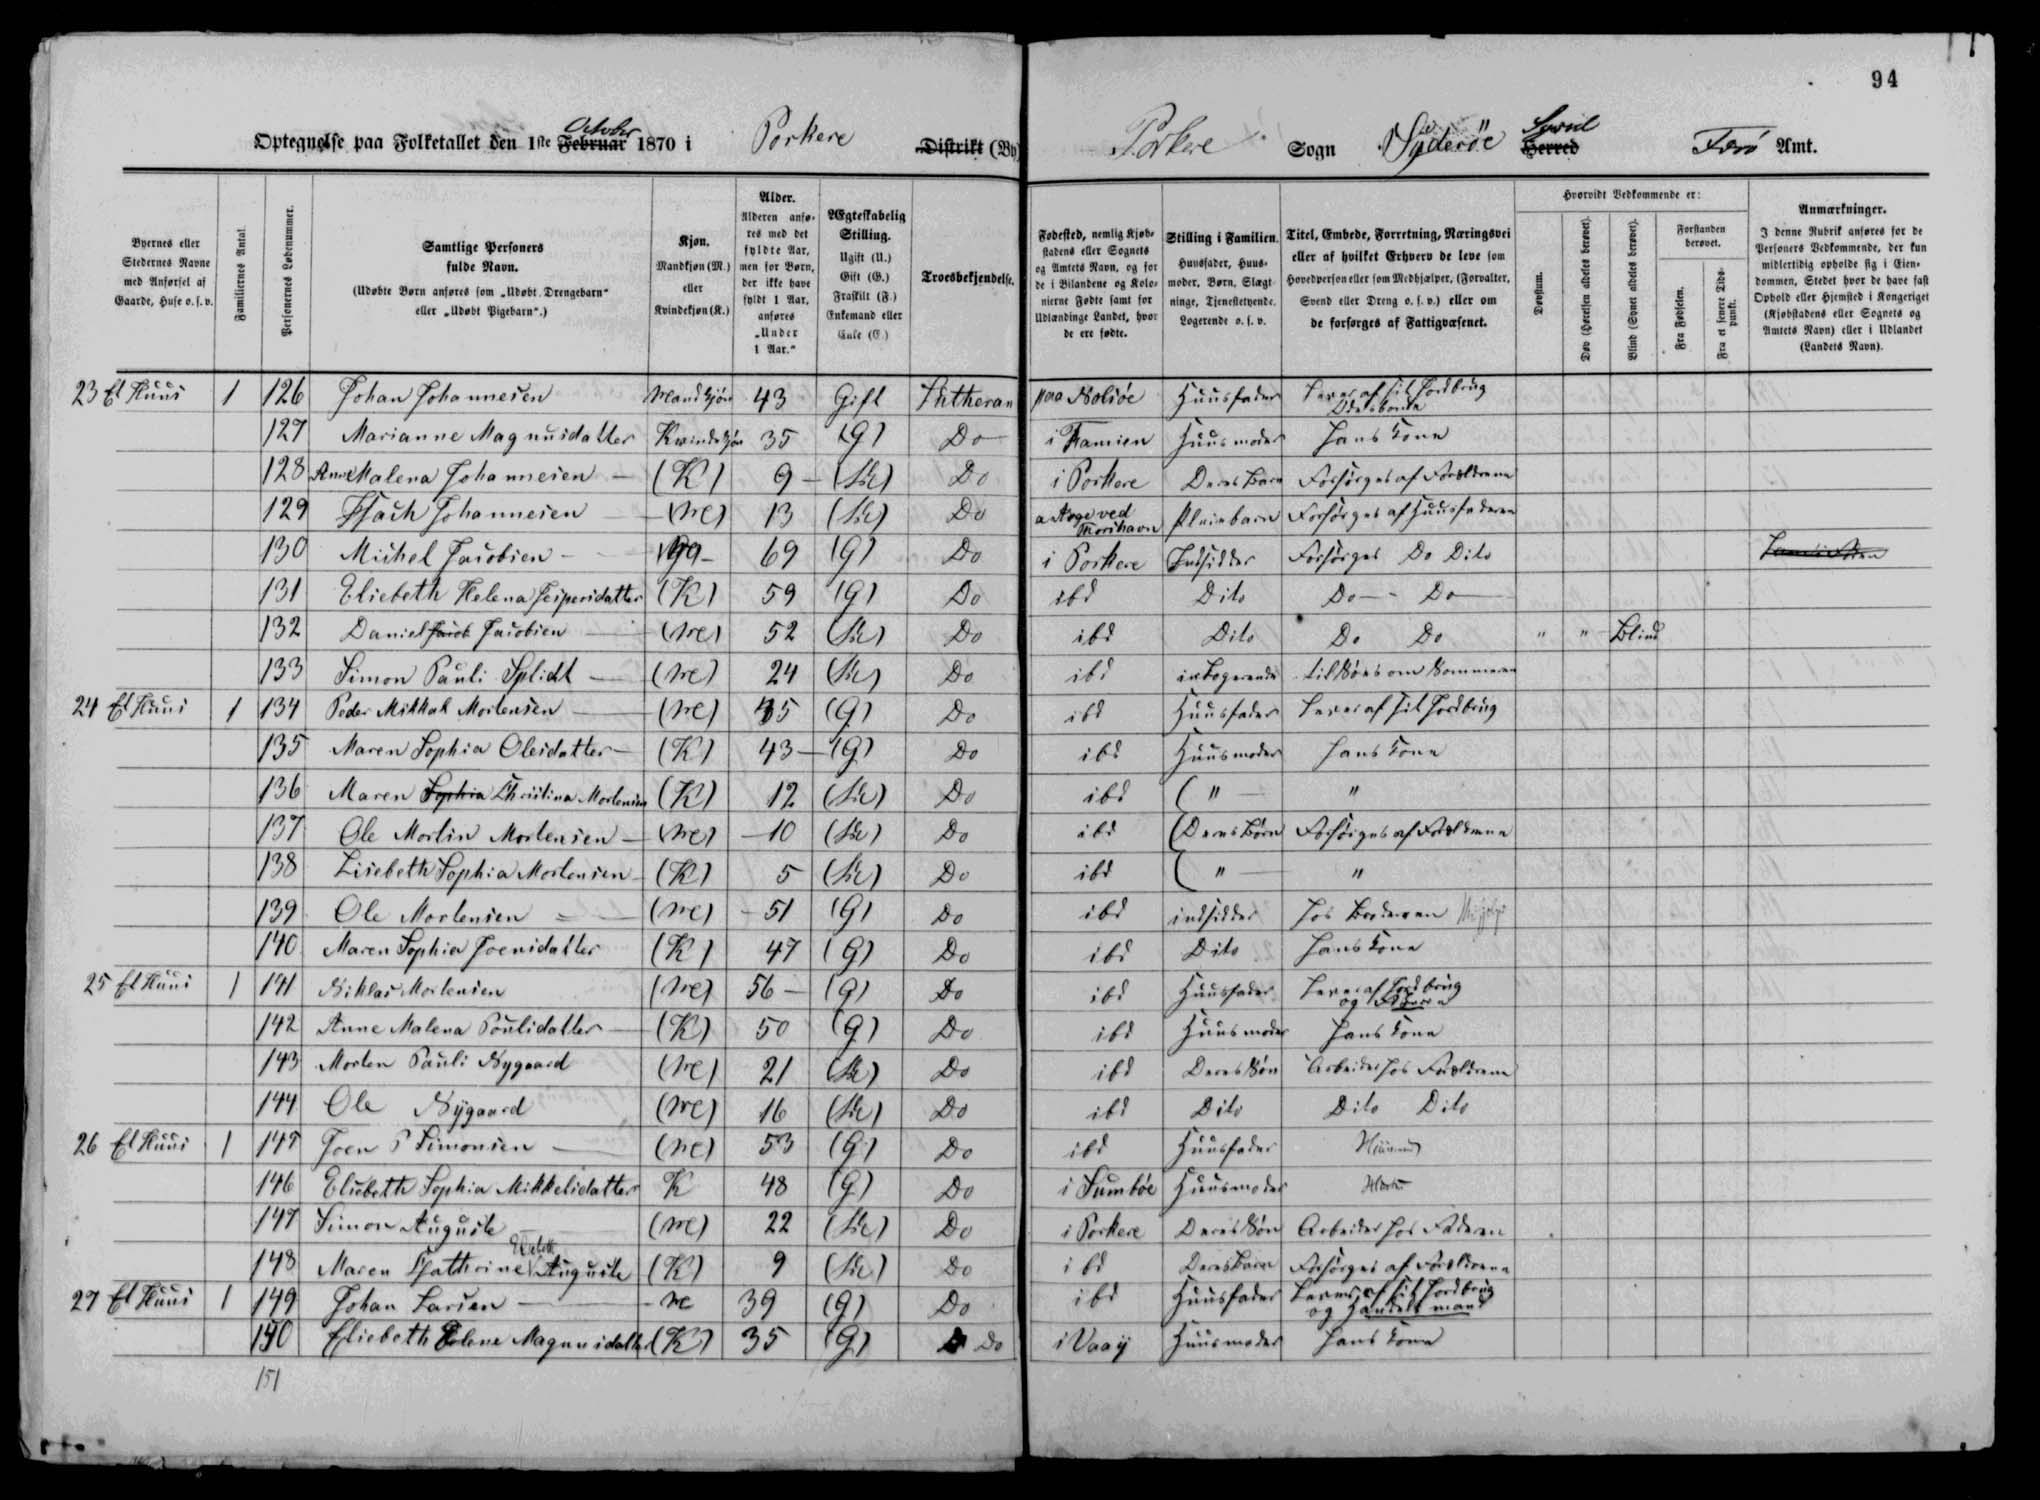 94
Optegnelse paa Folketallet den 1ste Februar October 1870 i Porkere Distrikt (By)
Porkere Sogn Syderöe Herred Syssel Færö Amt.
Byernes eller Stedernes Navne med Anførsel af Gaarde, Huse o. s. v.
Familiernes Antal.
Personernes Løbenummer.
Samtlige Personers fulde Navn.
(Udøbte Børn anføres som „Udøbt Drengebarn“ eller „Udøbt Pigebarn“.)
Kjøn.
Mandkjøn (M.) eller Kvindekjøn (K.)
Alder.
Alderen anføres med det fyldte Aar, men for Børn, der ikke have fyldt 1 Aar, anføres „Under 1 Aar.“
Ægteskabelig Stilling.
Ugift (U.) Gift (G.) Fraskilt (F.) Enkemand eller Enke (E.)
Troesbekjendelse.
Fødested, nemlig Kjøbstadens eller Sognets og Amtets Navn, og for de i Bilandene og Kolonierne Fødte samt for Udlændinge Landet, hvor de ere fødte.
Stilling i Familien.
Huusfader, Huusmoder, Børn, Slægtninge, Tjenestetyende, Logerende o. s. v.
Titel, Embede, Forretning, Næringsvei eller af hvilket Erhverv de leve som Hovedperson eller som Medhjælper, (Forvalter, Svend eller Dreng o. s. v.) eller om de forsørges af Fattigvæsenet.
Hvorvidt Vedkommende er:
Døvstum.
Døv (Hørelsen aldeles berøvet).
Blind (Synet aldeles berøvet).
Forstanden berøvet.
Fra Fødselen.
Fra et senere Tidspunkt.
Anmærkninger.
I denne Rubrik anføres for de Personers Vedkommende, der kun midlertidig opholde sig i Eiendommen, Stedet hvor de have fast Ophold eller Hjemsted i Kongeriget (Kjøbstadens eller Sognets og Amtets Navn) eller i Udlandet (Landets Navn).
23 Et Huus 1 126 Johan Johannesen Mandkjøn 43 Gift Lutheran paa Nolsöe Huusfader Lever af sit Jordbrug
127 Marianne Magnusdatter Kvindekjøn 35 (G) Do i Famien Huusmoder hans Kone
128 Anne Malena Johannesen (K) 9 Do i Porkere Deres Barn Forsörges af Forældrene
129 Johannesen (M) 13 Do ved Thorshavn Pleiebarn Forsörges af Huusfaderen
130 Michel Jacobsen 69 (G) Do i Porkere Indsidder Forsörges Do Dito
131 Elsebeth Helena Jespersdatter (K) 59 (G) Do ibd Dito Do Do
132 Daniel Jacob Jacobsen (M) 52 Do ibd Dito Do Do " " Blind
133 Simon Pauli Splidt (M) 24 Do ibd til Söes om Sommeren
24 Et Huus 1 134 Peder Mikkal Mortensen (M) 45 (G) Do ibd Huusfader Lever af sit Jordbrug
135 Maren Sophia Olesdatter (K) 43 (G) Do ibd Huusmoder hans Kone
136 Maren Sophia Christina Mortensen (K) 12 Do ibd ( " "
137 Ole Mortin Mortensen (M) 10 Do ibd (Deres Börn Forsörges af Forældrene
138 Lisebeth Sophia Mortensen (K) 5 Do ibd ( " "
139 Ole Mortensen (M) 51 (G) Do ibd indsidder hos Broderen
140 Maren Sophia Joensdatter (K) 47 (G) Do ibd Dito hans Kone
25 Et Huus 1 141 Niklas Mortensen (M) 56 (G) Do ibd Huusfader Lever af Jordbrug og
142 Anne Malena Poulsdatter (K) 50 (G) Do ibd Huusmoder hans Kone
143 Morten Pauli Nygaard (M) 21 Do ibd Deres Sön Arbeider hos Forældrene
144 Ole Nygaard (M) 16 Do ibd Dito Dito Dito
26 Et Huus 1 145 Joen P Simonsen (M) 53 (G) Do ibd Huusfader
146 Elsebeth Sophia Mikkelsdatter K 48 (G) Do i Sumböe Huusmoder
147 Simon Auguste (M) 22 Do i Porkere Deres Sön Arbeider hos Faderen
148 Maren Cathrine Elsebeth Auguste (K) 9 Do ibd Deres Barn Forsörges af Forældrene
27 Et Huus 1 149 Johan Larsen M 39 (G) Do ibd Huusfader Lever af sit Jordbrug og Handelsmand
150 Elsebeth Helene Magnusdatter (K) 35 (G) Do i Vaag Huusmoder hans Kone
151